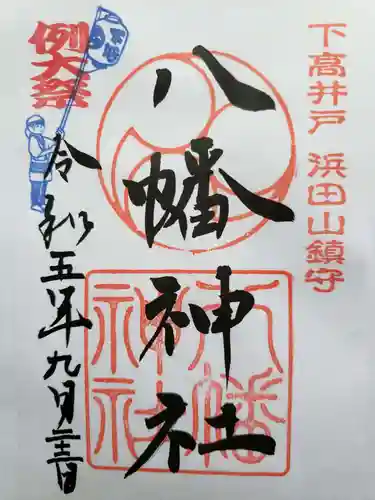 下高井戸 浜田山鎮守
八幡神社
八幡
神社
例大祭
令和五年九月二十三日